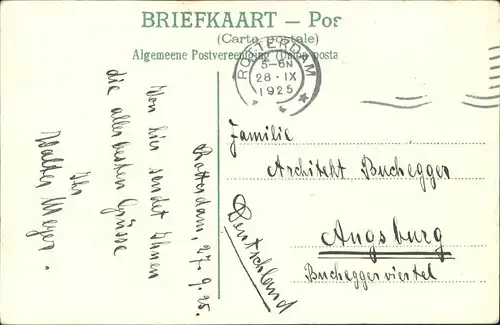 BRIEFKAART — Pos
(Carte postale)
Algemeene Postvereeniging (Union posta
ROTTERDAM
5-6N
28.IX
1925
Rotterdam, 27.9.25.
Von hier sendet Ihnen
die allerbesten Grüsse
Ihr
Walther Meyer.
Familie
Architekt Buchegger
Augsburg
Bucheggerviertel
Deutschland